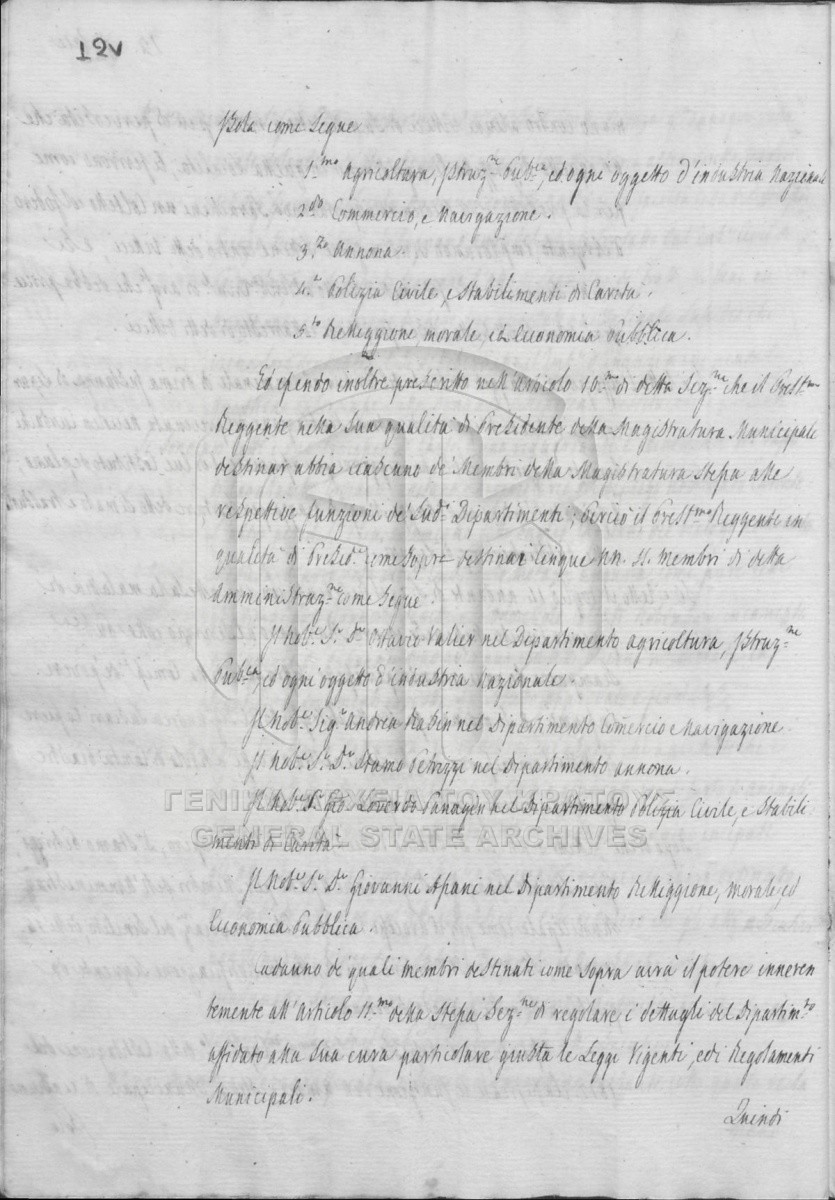 12v
Isola come segue
1.mo Agricoltura, Istruz.ne Pub.ca, ed ogni oggetto d'industria Nazionale
2.do Commercio, e Navigazione.
3.zo Annona.
4.to Polizia Civile, e Stabilimenti di Carita.
5.to Relliggione, morale, ed Economia Pubblica.
Ed essendo inoltre prescritto nell'Articolo 10.mo di detta Sez.ne che il Prest.mo
Reggente nella sua qualità di Presidente della Magistratura Municipale
destinar abbia ciascuno de' Membri della Magistratura stessa alle
respettive funzioni de' Sud.i Dipartimenti; perciò il Prest.mo Reggente in
qualità di Presid.e come sopra destina i cinque NN. SS. membri di detta
Amministraz.ne come segue.
Il Nob.e S.r D.r Ottavio Valier nel Dipartimento agricoltura, Istruz.ne
Pub.ca, ed ogni oggetto d'industria Nazionale.
Il Nob.e Sig.r Andrea Rabin nel Dipartimento Comercio e Navigazione
Il Nob.e S.r D.r Stamo Petrizzi nel Dipartimento annona.
Il Nob.e S.r Gio Loverdo Panagin nel Dipartimento Polizia Civile, e Stabili
menti di Carita.
Il Nob.e S.r D.r Giovanni Asani nel Dipartimento Relliggione, morale, ed
Economia Pubblica.
Cadauno de quali membri destinati come sopra avrà il potere inneren
temente all'Articolo 11.mo della stessa Sez.ne di regolare i dettagli del Dipartim.to
affidato alla sua cura particolare giusta le Leggi Vigenti, ed i Regolamenti
Municipali.
Quindi
ΓΕΝΙΚΑ ΑΡΧΕΙΑ ΤΟΥ ΚΡΑΤΟΥΣ
GENERAL STATE ARCHIVES